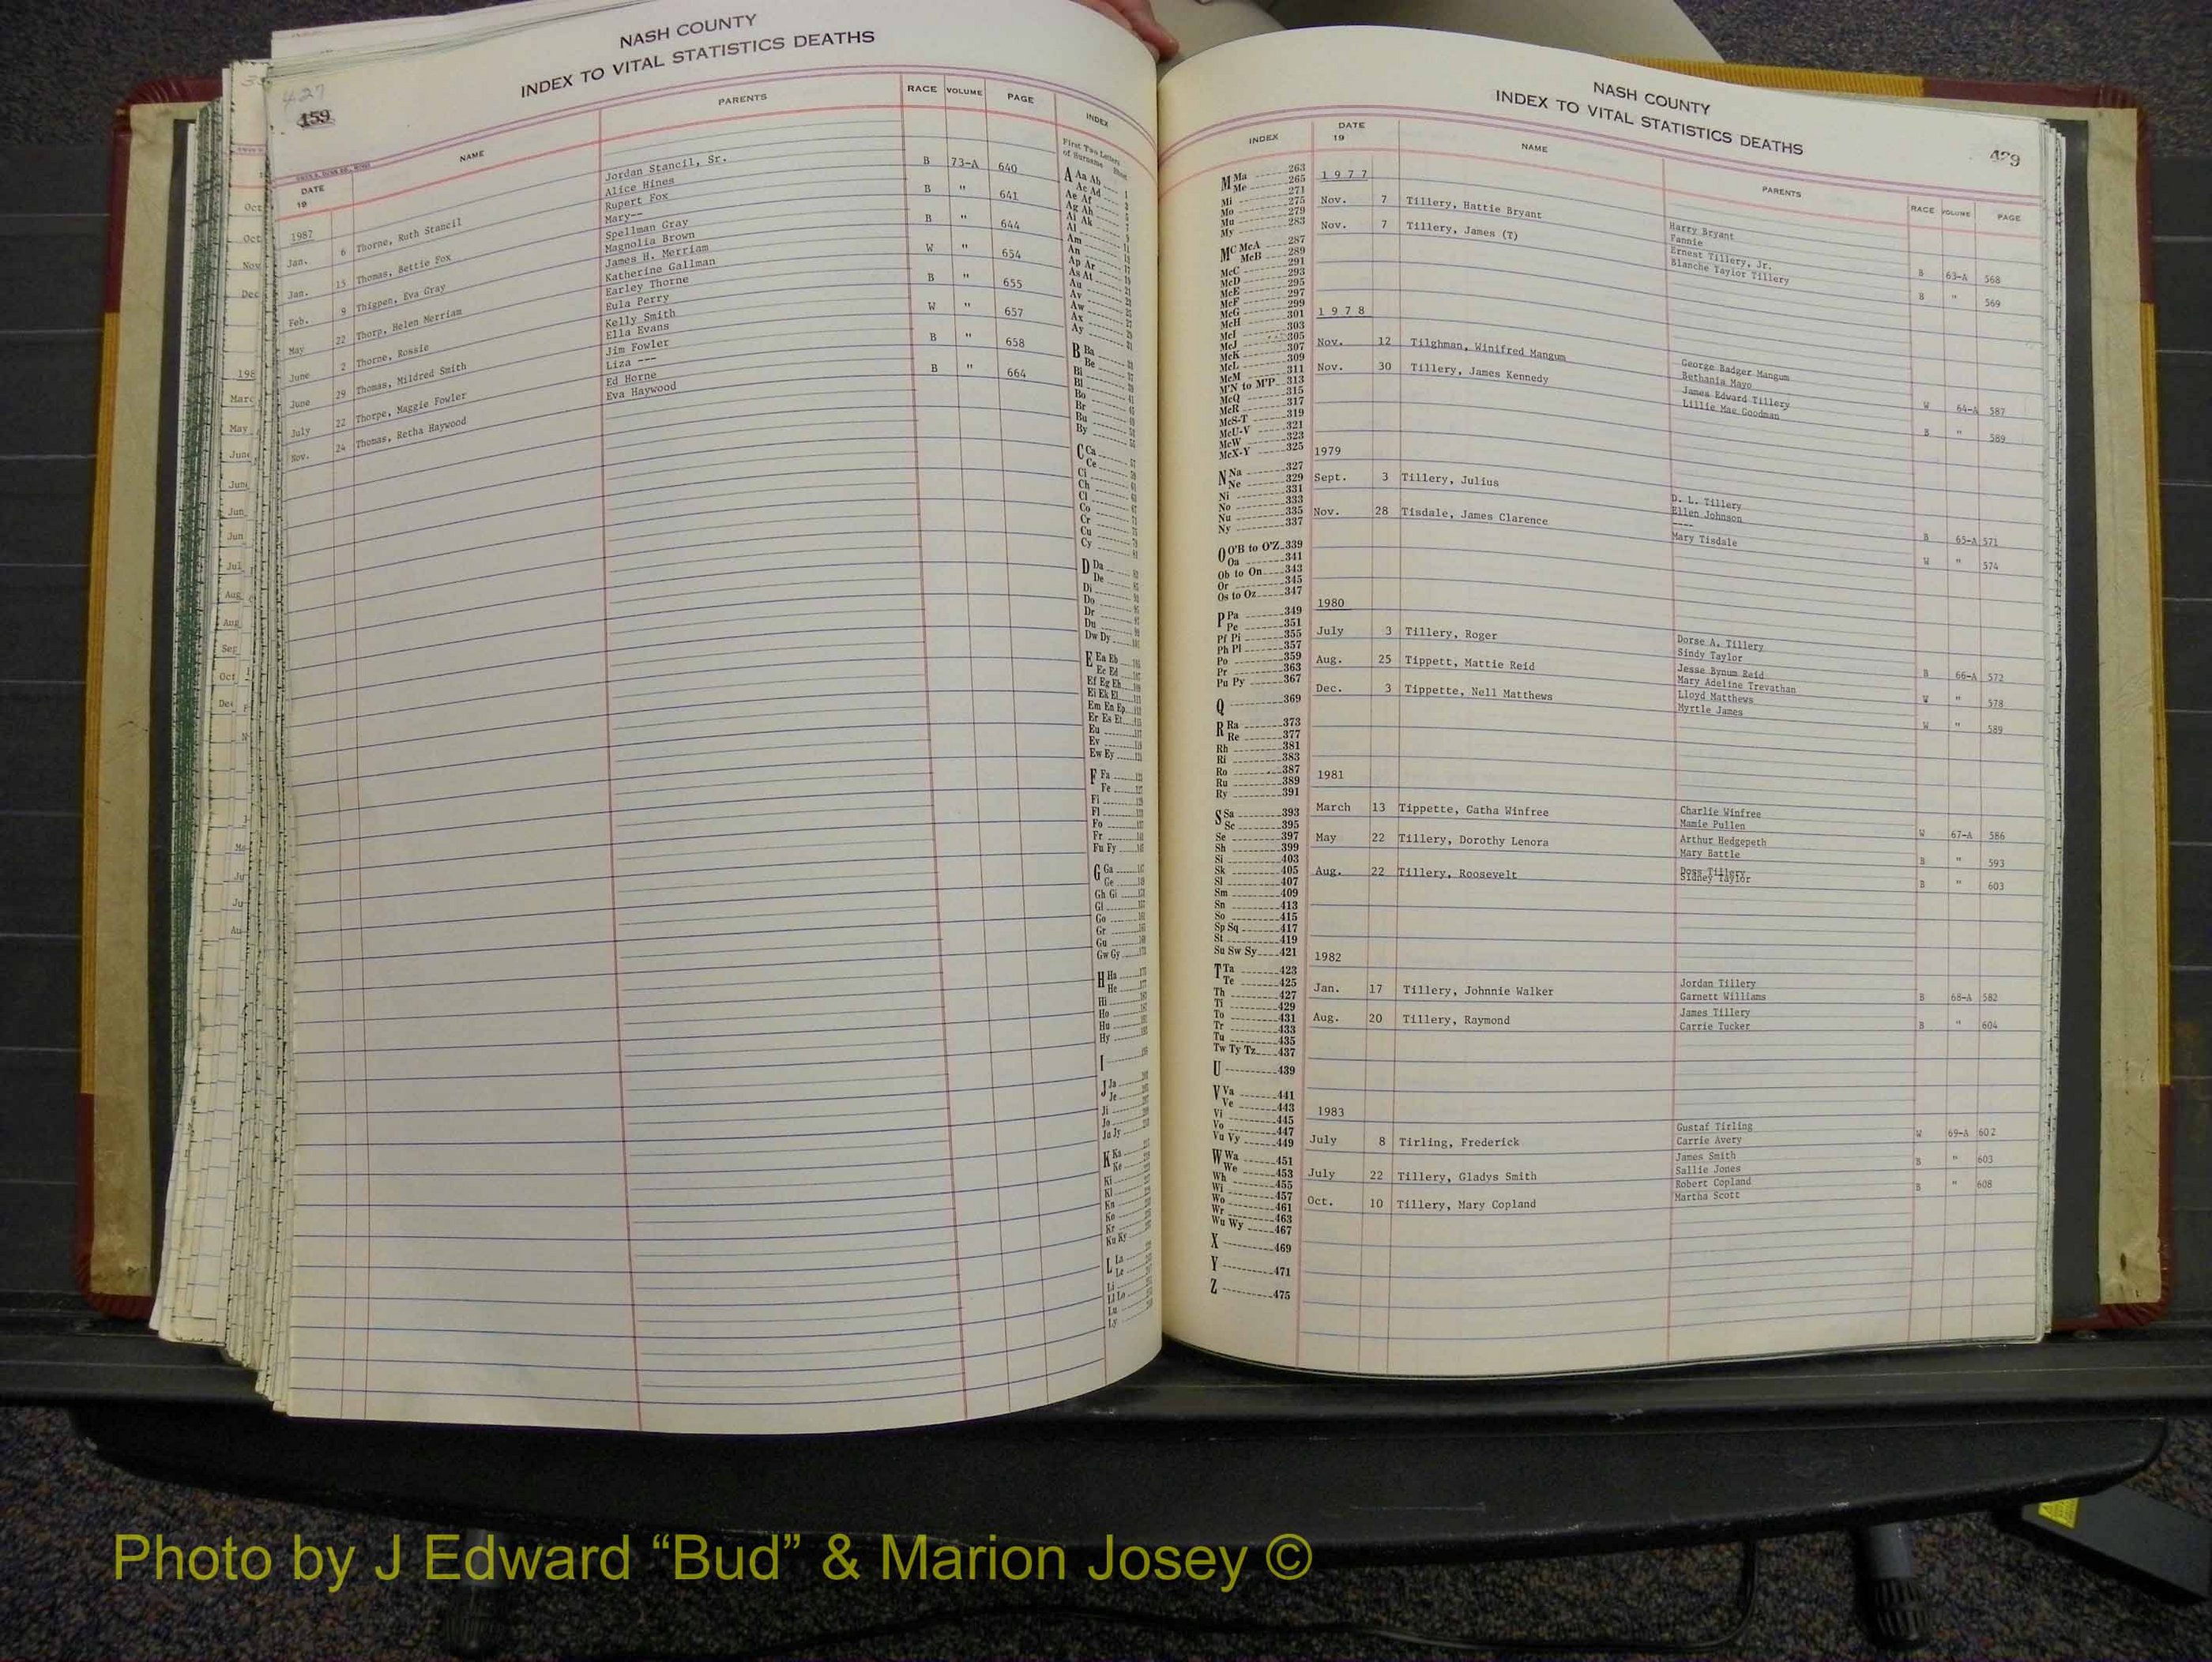 NASH COUNTY
INDEX TO VITAL STATISTICS DEATHS
427
159
DATE 19 NAME PARENTS RACE VOLUME PAGE INDEX
1987
Jan. 6 Thorne, Ruth Stancil Jordan Stancil, Sr. B 73-A 640
Alice Hines
Jan. 15 Thomas, Bettie Fox Rupert Fox B " 641
Mary--
Feb. 9 Thigpen, Eva Gray Spellman Gray B " 644
Magnolia Brown
May 22 Thorp, Helen Merriam James H. Merriam W " 654
Katherine Gallman
June 2 Thorne, Rossie Earley Thorne B " 655
Eula Perry
June 29 Thomas, Mildred Smith Kelly Smith W " 657
Ella Evans
July 22 Thorpe, Maggie Fowler Jim Fowler B " 658
Liza ---
Nov. 24 Thomas, Retha Haywood Ed Horne B " 664
Eva Haywood
First Two Letters
of Surname
A Aa Ab
Ac Ad
Ae Af
Ag Ah
Ai Ak
Al
Am
An
Ap Ar
As At
Au
Av
Aw
Ax
Ay
B Ba
Be
Bi
Bl
Bo
Br
Bu
By
C Ca
Ce
Ci
Ch
Cl
Co
Cr
Cu
Cy
D Da
De
Di
Do
Dr
Du
Dw Dy
E Ea Eb
Ec Ed
Ef Eg Eh
Ei Ek El
Em En Ep
Er Es Et
Eu
Ev
Ew Ey
F Fa
Fe
Fi
Fl
Fo
Fr
Fu Fy
G Ga
Ge
Gh Gi
Gl
Go
Gr
Gu
Gw Gy
H Ha
He
Hi
Ho
Hu
Hy
I
J Ja
Je
Ji
Jo
Ju Jy
K Ka
Ke
Ki
Kl
Kn
Ko
Kr
Ku Ky
L La
Le
Li
Ll Lo
Lu
Ly
NASH COUNTY
INDEX TO VITAL STATISTICS DEATHS
429
INDEX DATE 19 NAME PARENTS RACE VOLUME PAGE
M Ma 263
Me 265
Mi 271
Mo 275
Mu 279
My 283
MC McA 287
McB 289
McC 291
McD 293
McE 295
McF 297
McG 299
McH 301
McI 303
McJ 305
McK 307
McL 309
McM 311
M'N to M'P 313
McQ 315
McR 317
McS-T 319
McU-V 321
McW 323
McX-Y 325
N Na 327
Ne 329
Ni 331
No 333
Nu 335
Ny 337
O O'B to O'Z 339
Oa 341
Ob to On 343
Or 345
Os to Oz 347
P Pa 349
Pe 351
Pf Pi 355
Ph Pl 357
Po 359
Pr 363
Pu Py 367
Q 369
R Ra 373
Re 377
Rh 381
Ri 383
Ro 387
Ru 389
Ry 391
S Sa 393
Sc 395
Se 397
Sh 399
Si 403
Sk 405
Sl 407
Sm 409
Sn 413
So 415
Sp Sq 417
St 419
Su Sw Sy 421
T Ta 423
Te 425
Th 427
Ti 429
To 431
Tr 433
Tu 435
Tw Ty Tz 437
U 439
V Va 441
Ve 443
Vi 445
Vo 447
Vu Vy 449
W Wa 451
We 453
Wh 455
Wi 457
Wo 461
Wr 463
Wu Wy 467
X 469
Y 471
Z 475
1977
Nov. 7 Tillery, Hattie Bryant Harry Bryant B 63-A 568
Fannie
Nov. 7 Tillery, James (T) Ernest Tillery, Jr. B " 569
Blanche Taylor Tillery
1978
Nov. 12 Tilghman, Winifred Mangum George Badger Mangum W 64-A 587
Bethania Mayo
Nov. 30 Tillery, James Kennedy James Edward Tillery B " 589
Lillie Mae Goodman
1979
Sept. 3 Tillery, Julius D. L. Tillery B 65-A 571
Ellen Johnson
Nov. 28 Tisdale, James Clarence ---- W " 574
Mary Tisdale
1980
July 3 Tillery, Roger Dorse A. Tillery B 66-A 572
Sindy Taylor
Aug. 25 Tippett, Mattie Reid Jesse Bynum Reid W " 578
Mary Adeline Trevathan
Dec. 3 Tippette, Nell Matthews Lloyd Matthews W " 589
Myrtle James
1981
March 13 Tippette, Gatha Winfree Charlie Winfree W 67-A 586
Mamie Pullen
May 22 Tillery, Dorothy Lenora Arthur Hedgepeth B " 593
Mary Battle
Aug. 22 Tillery, Roosevelt Doss Tillery B " 603
Sidney Taylor
1982
Jan. 17 Tillery, Johnnie Walker Jordan Tillery B 68-A 582
Garnett Williams
Aug. 20 Tillery, Raymond James Tillery B " 604
Carrie Tucker
1983
July 8 Tirling, Frederick Gustaf Tirling W 69-A 602
Carrie Avery
July 22 Tillery, Gladys Smith James Smith B " 603
Sallie Jones
Oct. 10 Tillery, Mary Copland Robert Copland B " 608
Martha Scott
Photo by J Edward “Bud” & Marion Josey ©